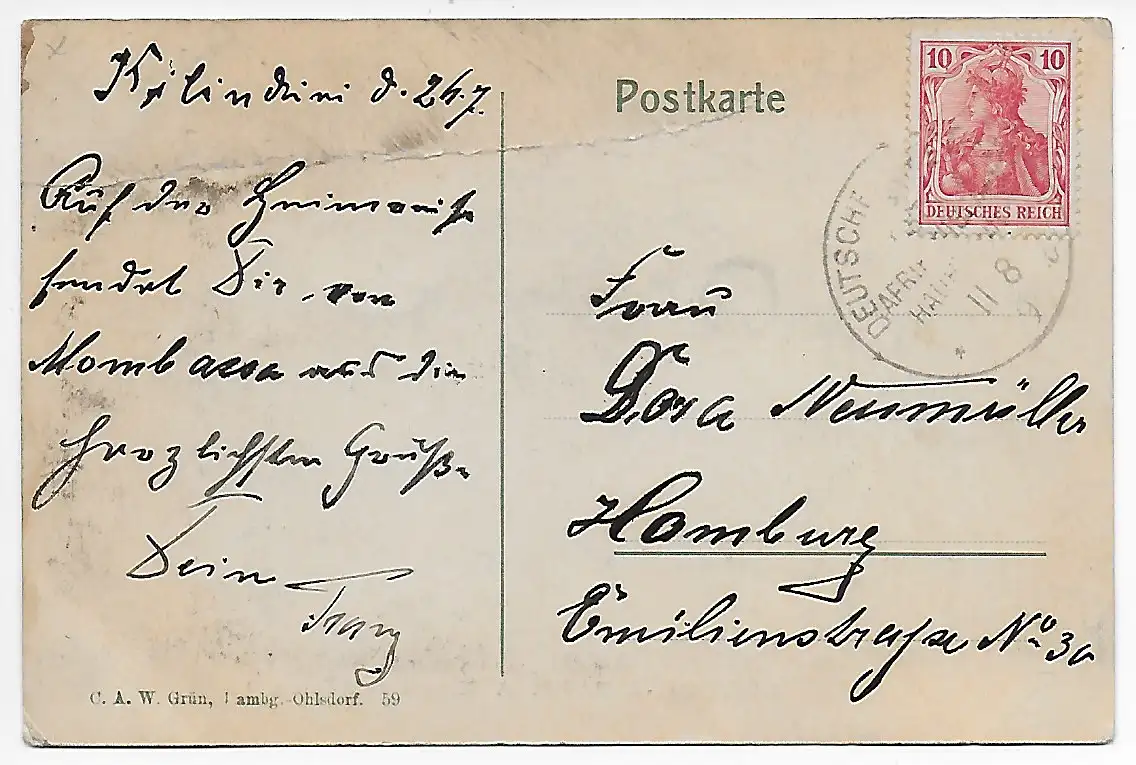 Kilindini d. 24.7.
Auf der Heimreise
sendet Dir von
Mombassa aus die
herzlichsten Grüße
Dein
Franz
C. A. W. Grün, Hambg.-Ohlsdorf. 59
Postkarte
10 10
DEUTSCHES REICH
DEUTSCHE
11 8
Frau
Dora Neumüller
Hamburg
Emilienstraße No 30